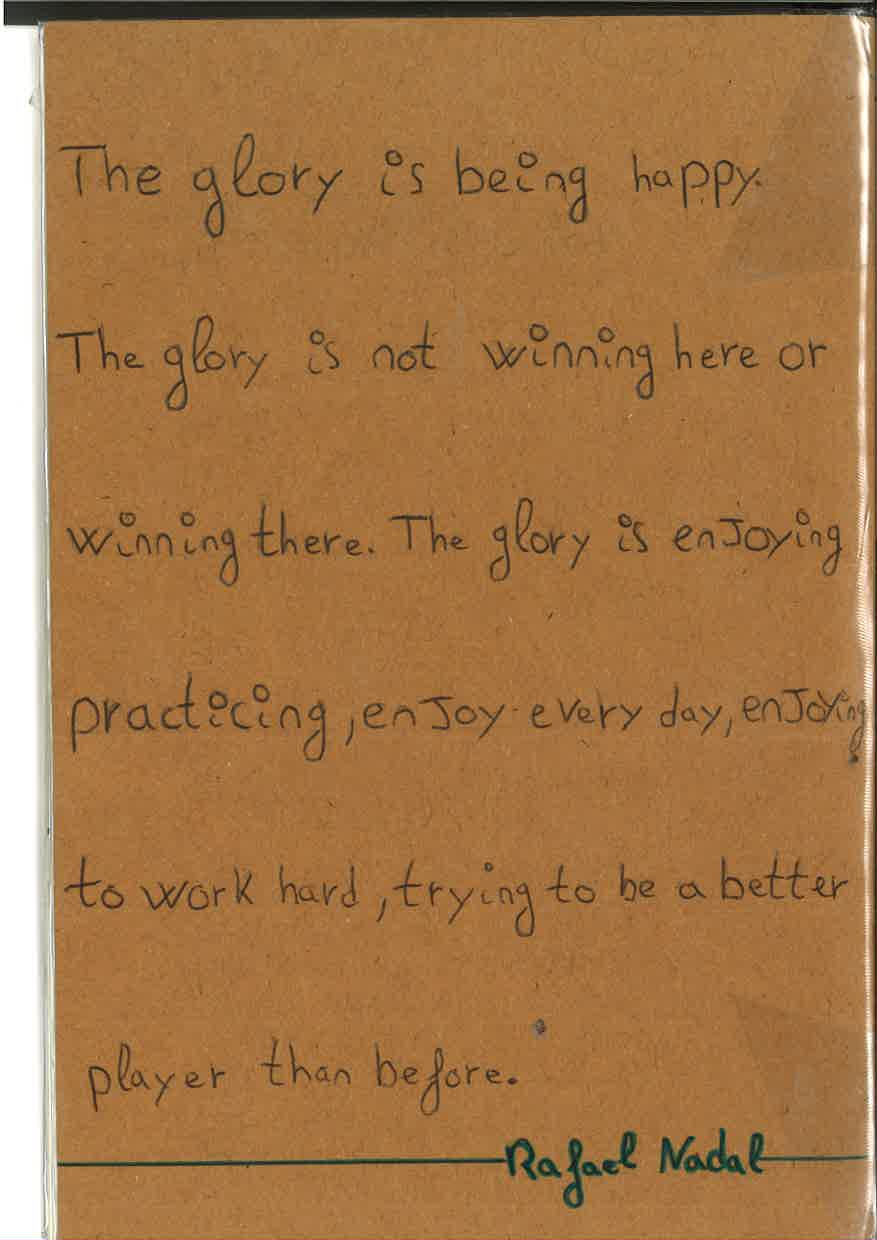 The glory is being happy.
The glory is not winning here or
winning there. The glory is enJoying
practicing, enJoy every day, enJoying
to work hard, trying to be a better
player than before.
Rafael Nadal